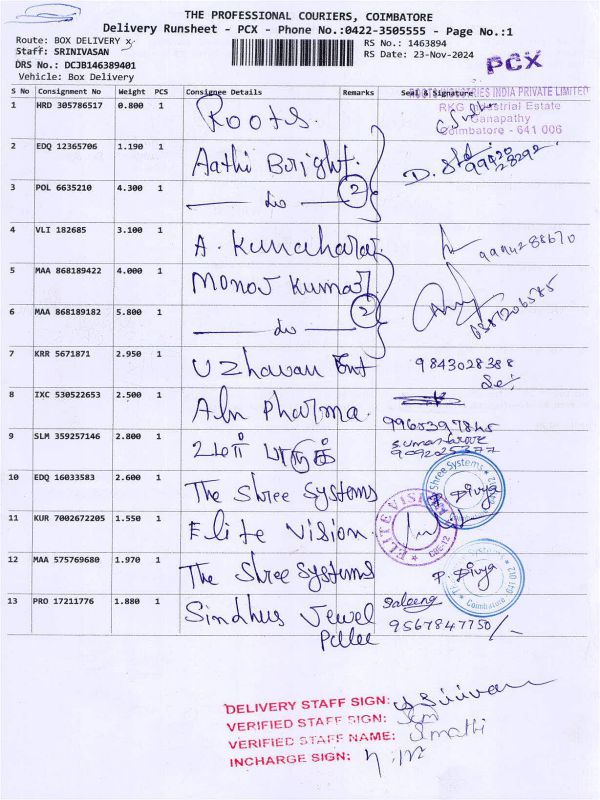 THE PROFESSIONAL COURIERS, COIMBATORE
Delivery Runsheet - PCX - Phone No.:0422-3505555 - Page No.:1
Route: BOX DELIVERY x
Staff: SRINIVASAN
DRS No.: DCJB146389401
Vehicle: Box Delivery
RS No.: 1463894
RS Date: 23-Nov-2024
PCX
S No Consignment No Weight PCS Consignee Details Remarks Seal & Signature
INDUSTRIES INDIA PRIVATE LIMITED
RKG Industrial Estate
Ganapathy
Coimbatore - 641 006
1 HRD 305786517 0.800 1 Roots.
2 EDQ 12365706 1.190 1 Aathi Bright.
3 POL 6635210 4.300 1 — do — 2
4 VLI 182685 3.100 1 A. 9994288670
5 MAA 868189422 4.000 1 Manoj Kumar
6 MAA 868189182 5.800 1 — do — 2
7 KRR 5671871 2.950 1 Uzhavan Ent 9843028388
8 IXC 530522653 2.500 1 Aln Pharma.
9 SLM 359257146 2.800 1
10 EDQ 16033583 2.600 1 The Shree Systems P. Divya
Shree Systems
11 KUR 7002672205 1.550 1 Elite Vision.
ELITE VISION CBE-12
12 MAA 575769680 1.970 1 The Shree Systems P. Divya
Systems Coimbatore - 641 012
13 PRO 17211776 1.880 1 Sindhus Jewel
9567847750/-
DELIVERY STAFF SIGN:
VERIFIED STAFF SIGN:
VERIFIED STAFF NAME: Sumathi
INCHARGE SIGN: